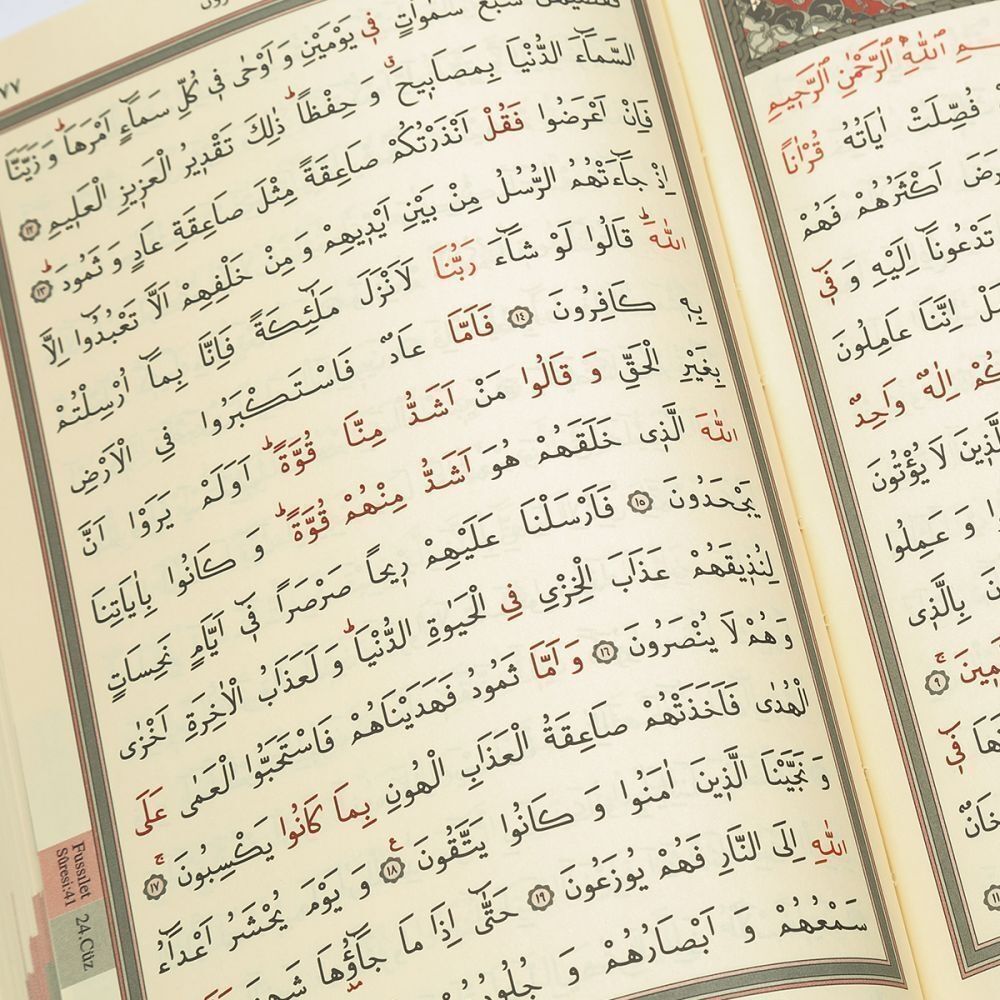 سَمٰوَاتٍ فٖى يَوْمَيْنِ وَ اَوْحٰى فٖى كُلِّ سَمَٓاءٍ اَمْرَهَاؕ وَ زَيَّنَّا
السَّمَٓاءَ الدُّنْيَا بِمَصَابٖيحَࣗ وَ حِفْظاًؕ ذٰلِكَ تَقْدٖيرُ الْعَزٖيزِ الْعَلٖيمِ ﴿١٢﴾
فَاِنْ اَعْرَضُوا فَقُلْ اَنْذَرْتُكُمْ صَاعِقَةً مِثْلَ صَاعِقَةِ عَادٍ وَ ثَمُودَؕ ﴿١٣﴾
اِذْ جَٓاءَتْهُمُ الرُّسُلُ مِنْ بَيْنِ اَيْدٖيهِمْ وَ مِنْ خَلْفِهِمْ اَلَّا تَعْبُدُٓوا اِلَّا
اللّٰهَؕ قَالُوا لَوْ شَٓاءَ رَبُّنَا لَاَنْزَلَ مَلٰٓئِكَةً فَاِنَّا بِمَٓا اُرْسِلْتُمْ
بِهٖ كَافِرُونَ ﴿١٤﴾ فَاَمَّا عَادٌ فَاسْتَكْبَرُوا فِى الْاَرْضِ
بِغَيْرِ الْحَقِّ وَ قَالُوا مَنْ اَشَدُّ مِنَّا قُوَّةًؕ اَوَلَمْ يَرَوْا اَنَّ
اللّٰهَ الَّذٖى خَلَقَهُمْ هُوَ اَشَدُّ مِنْهُمْ قُوَّةًؕ وَ كَانُوا بِاٰيَاتِنَا
يَجْحَدُونَ ﴿١٥﴾ فَاَرْسَلْنَا عَلَيْهِمْ رٖيحاً صَرْصَراً فٖٓى اَيَّامٍ نَحِسَاتٍ
لِنُذٖيقَهُمْ عَذَابَ الْخِزْىِ فِى الْحَيٰوةِ الدُّنْيَاؕ وَ لَعَذَابُ الْاٰخِرَةِ اَخْزٰى
وَهُمْ لَا يُنْصَرُونَ ﴿١٦﴾ وَ اَمَّا ثَمُودُ فَهَدَيْنَاهُمْ فَاسْتَحَبُّوا الْعَمٰى عَلَى
الْهُدٰى فَاَخَذَتْهُمْ صَاعِقَةُ الْعَذَابِ الْهُونِ بِمَا كَانُوا يَكْسِبُونَۚ ﴿١٧﴾
وَ نَجَّيْنَا الَّذٖينَ اٰمَنُوا وَ كَانُوا يَتَّقُونَ ﴿١٨﴾ ع وَ يَوْمَ يُحْشَرُ اَعْدَٓاءُ
اللّٰهِ اِلَى النَّارِ فَهُمْ يُوزَعُونَ ﴿١٩﴾ حَتّٰٓى اِذَا مَا جَٓاؤُ۫هَا
سَمْعُهُمْ وَ اَبْصَارُهُمْ وَ
Fussılet
Sûresi:41
24.Cüz
اللّٰهِ الرَّحْمٰنِ الرَّحٖيمِ
فُصِّلَتْ اٰيَاتُهُ قُرْاٰناً
اَكْثَرُهُمْ فَهُمْ
تَدْعُونَٓا اِلَيْهِ وَ فٖٓى
اِنَّنَا عَامِلُونَ
اِلٰهٌ وَاحِدٌ
لَا يُؤْتُونَ
وَ عَمِلُوا
بِالَّذٖى
﴿٩﴾
فٖى